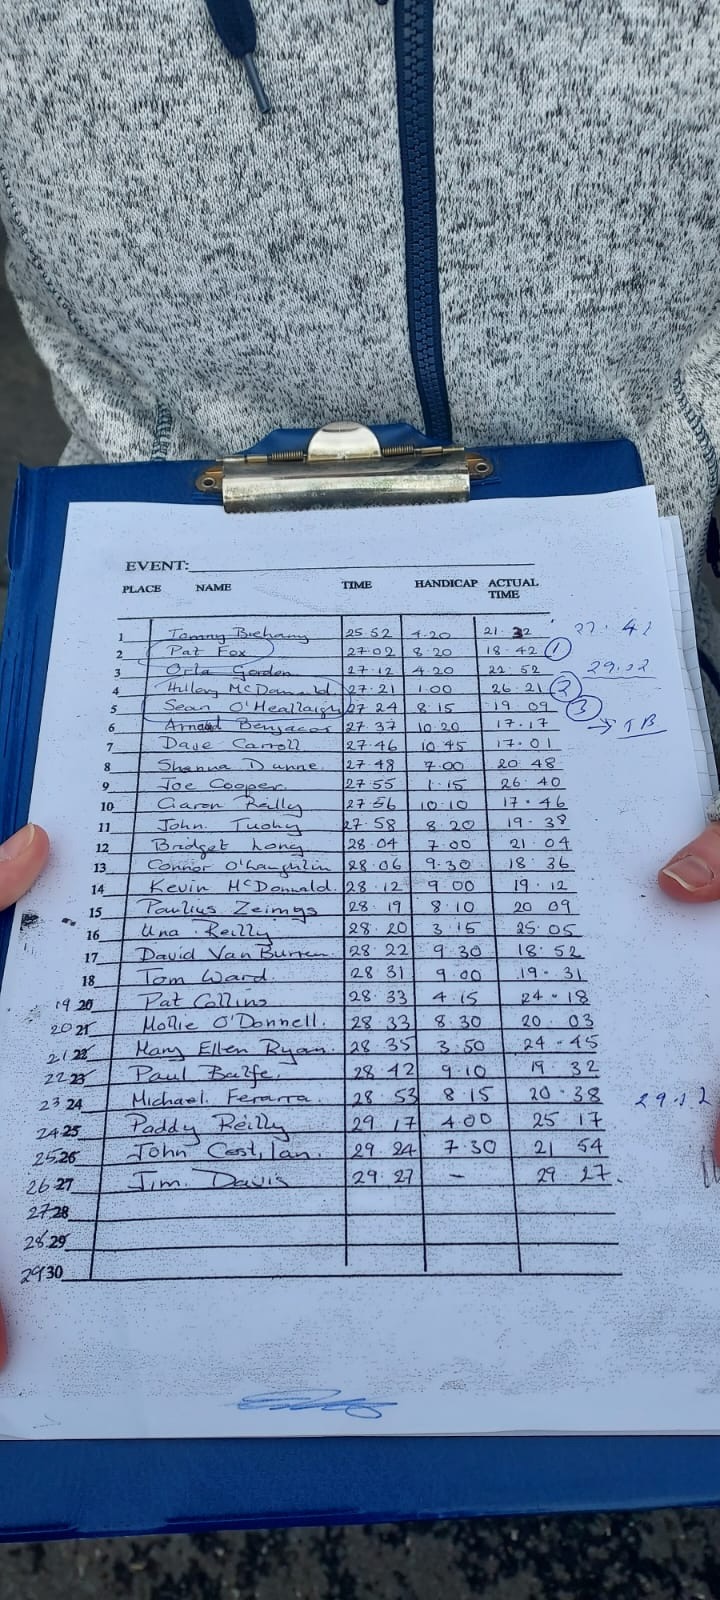 EVENT:
PLACE NAME TIME HANDICAP ACTUAL TIME
1 Tommy Breheny 25.52 4.20 21.32
2 Pat Fox 27.02 8.20 18.42 1
3 Orla Gordon 27.12 4.20 22.52 29.02
4 Hilary McDonald 27.21 1.00 26.21 2
5 Sean O'Heallaigh 27 24 8.15 19 09 3
6 27.37 10.20 17.17 → TB
7 Dave Carroll 27.46 10.45 17.01
8 Shanna Dunne 27.48 7.00 20 48
9 Joe Cooper 27.55 1.15 26.40
10 Ciaron Reilly 27.56 10.10 17.46
11 John Tuohy 27.58 8.20 19.38
12 Bridget Long 28.04 7.00 21.04
13 Connor O'Laughlin 28.06 9.30 18.36
14 Kevin McDonald 28.12 9.00 19.12
15 Paulius Zeimys 28.19 8.10 20 09
16 Una Reilly 28.20 3.15 25.05
17 David Van Burren 28.22 9 30 18.52
18 Tom Ward 28 31 9 00 19.31
19 20 Pat Collins 28.33 4.15 24.18
20 21 Mollie O'Donnell. 28.33 8.30 20.03
21 22 Mary Ellen Ryan 28.35 3.50 24.45
22 23 Paul Balfe 28.42 9.10 19.32
23 24 Michael Ferarra 28.53 8.15 20.38
24 25 Paddy Reilly 29.17 4.00 25.17
25 26 John Costilan. 29 24 7.30 21 54
26 27 Jim Davis 29.27 - 29 27.
27 28
28 29
29 30